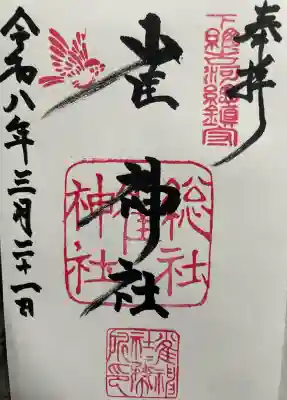 奉拝
下總古河總鎮守
雀神社
総社
雀
神社
雀神
社務
所印
令和八年三月二十一日